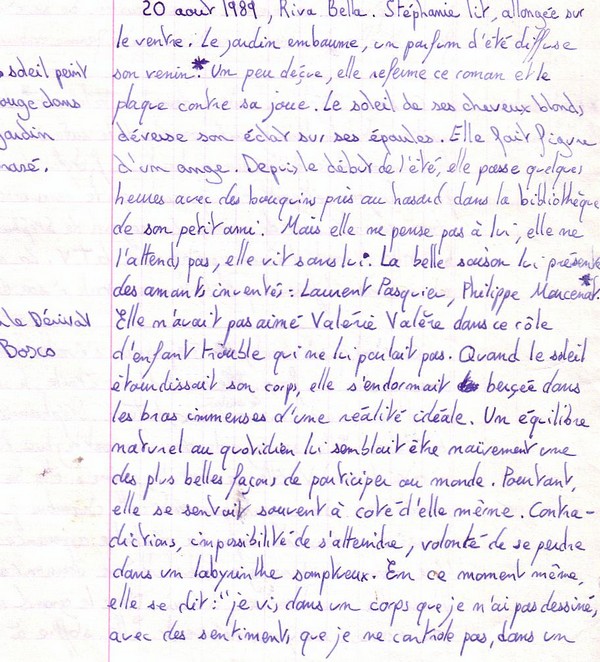 20 août 1989, Riva Bella. Stéphanie lit, allongée sur
le ventre. Le jardin embaume, un parfum d'été diffuse
son venin.* Un peu déçue, elle referme ce roman et le
plaque contre sa joue. Le soleil de ses cheveux blonds
déverse son éclat sur ses épaules. Elle fait figure
d'un ange. Depuis le début de l'été, elle passe quelques
heures avec des bouquins pris au hasard dans la bibliothèque
de son petit ami. Mais elle ne pense pas à lui, elle ne
l'attend pas, elle vit sans lui. La belle saison lui présente
des amants inventés : Laurent Pasquier, Philippe Marcenat.*
Elle n'avait pas aimé Valérie Valère dans ce rôle
d'enfant trouble qui ne lui parlait pas. Quand le soleil
étourdissait son corps, elle s'endormait bercée dans
les bras immenses d'une réalité idéale. Un équilibre
naturel au quotidien lui semblait être naïvement une
des plus belles façons de participer au monde. Pourtant,
elle se sentait souvent à côté d'elle même. Contra-
dictions, impossibilité de s'atteindre, volonté de se perdre
dans un labyrinthe somptueux. En ce moment même,
elle se dit : "je vis dans un corps que je n'ai pas dessiné,
avec des sentiments que je ne contrôle pas, dans un
soleil peint
ouge dans
jardin
masé.
ale Dérival
Bosco